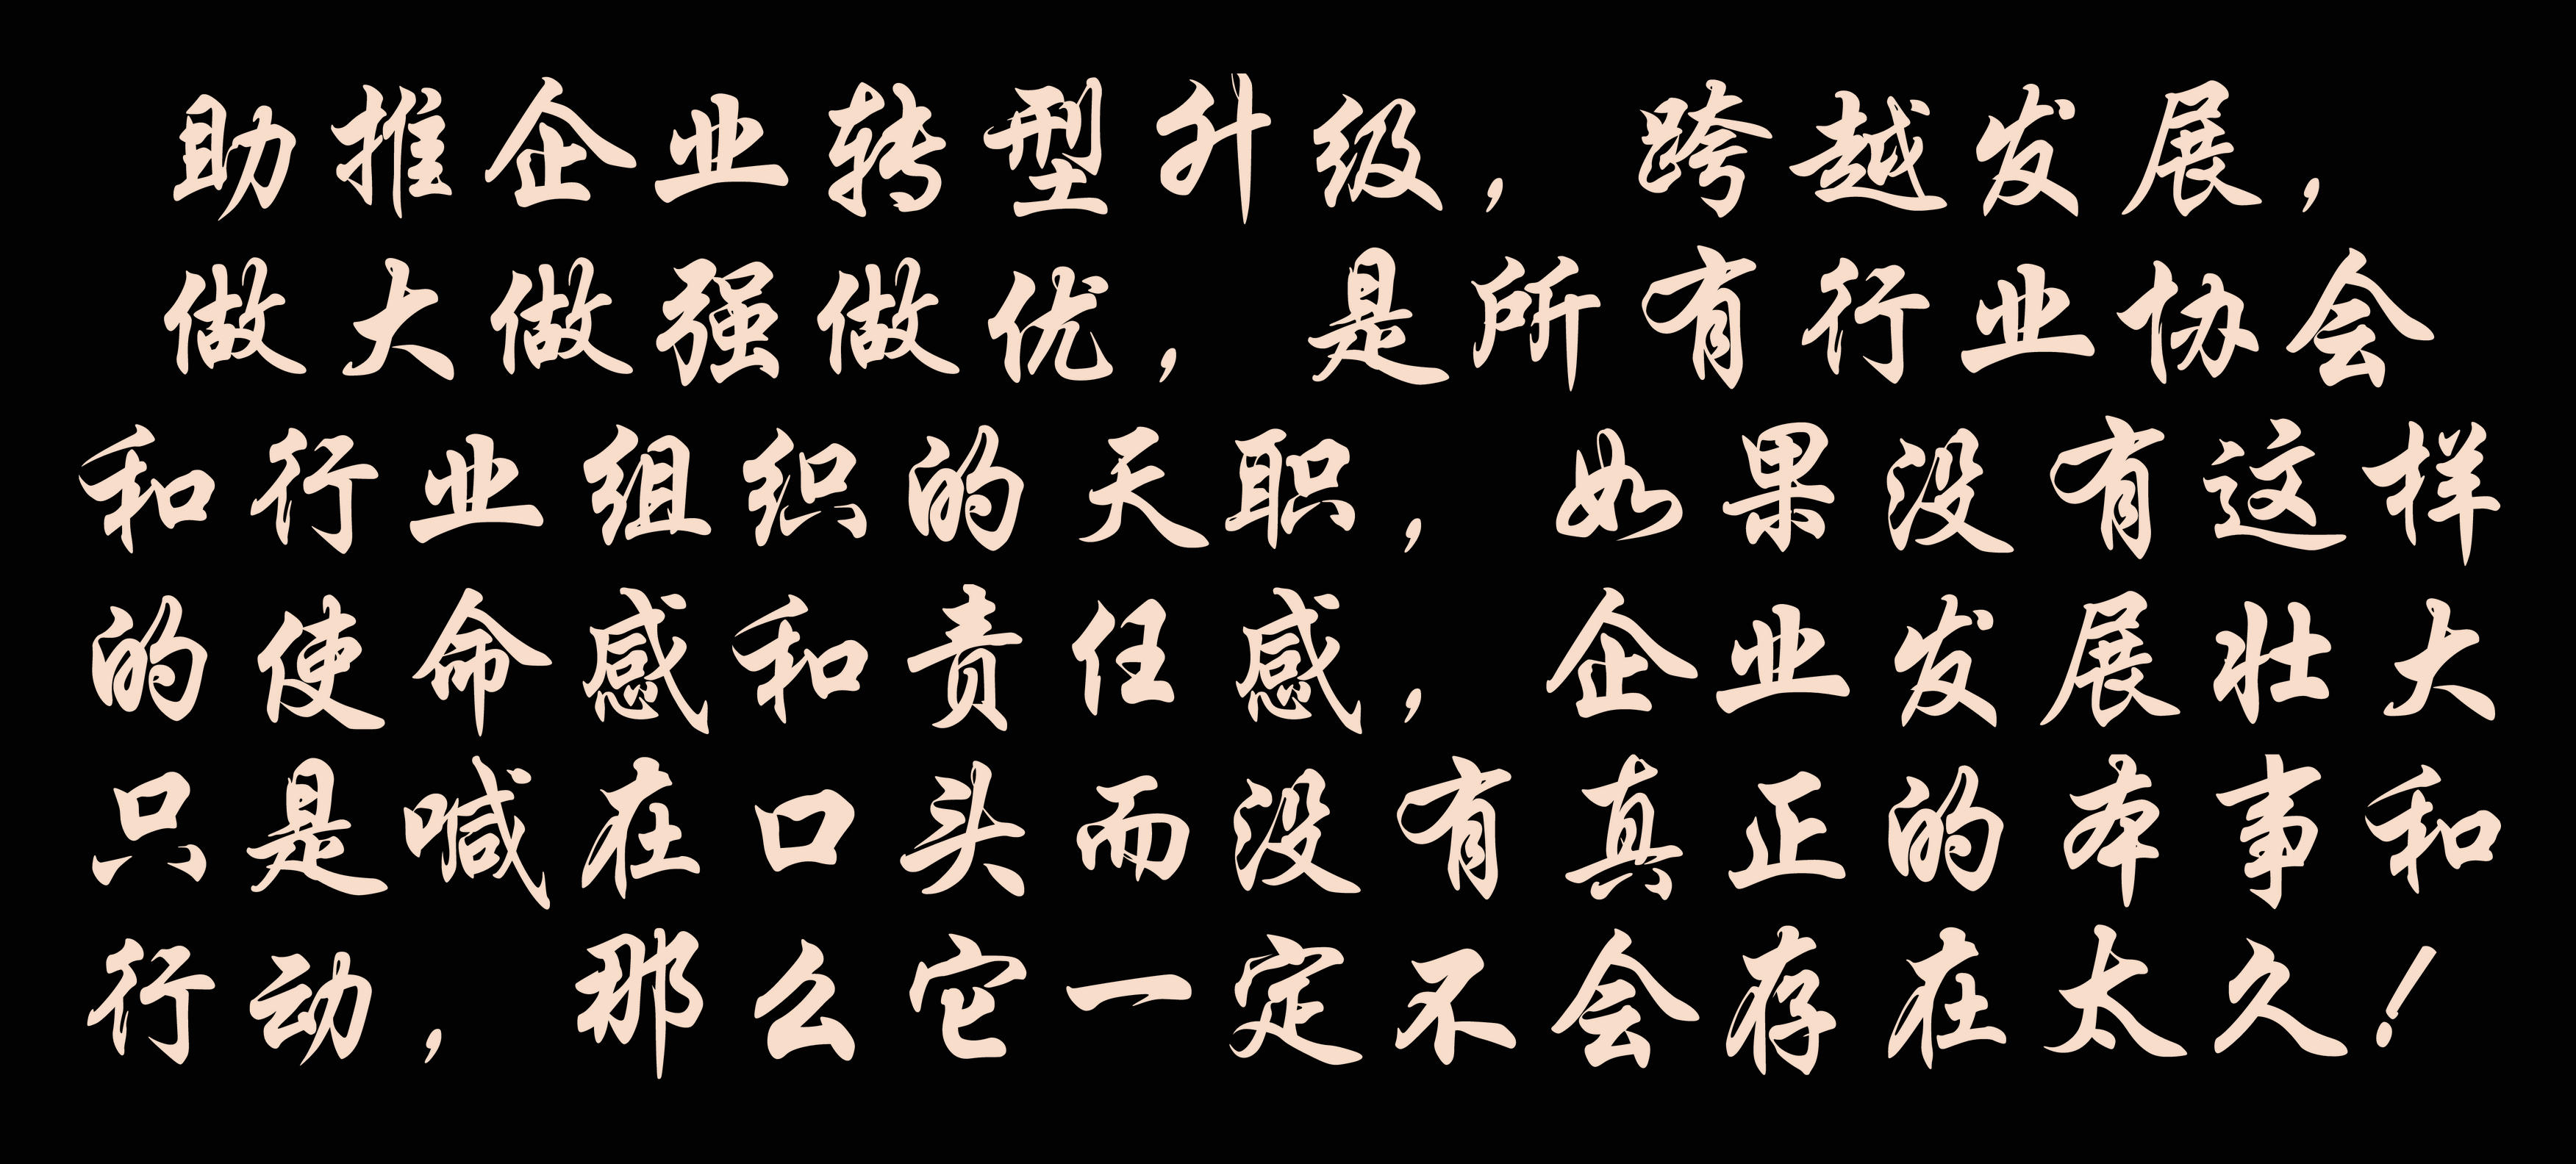 助推企业转型升级，跨越发展，
做大做强做优，是所有行业协会
和行业组织的天职，如果没有这样
的使命感和责任感，企业发展壮大
只是喊在口头而没有真正的本事和
行动，那么它一定不会存在太久！